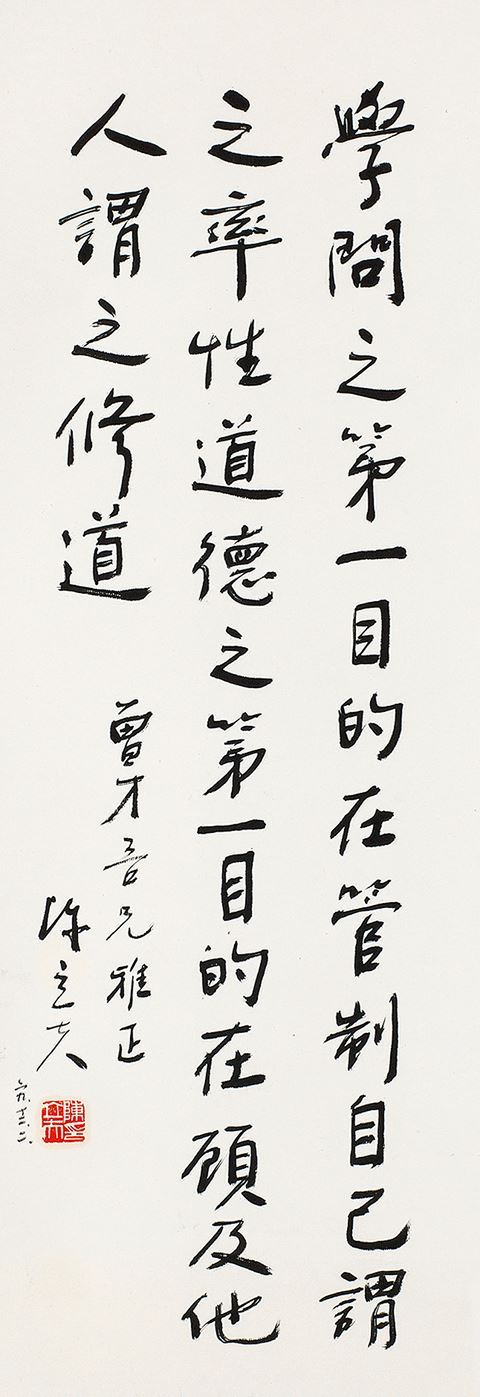 學問之第一目的在管制自己謂
之率性道德之第一目的在顧及他
人謂之修道
曾才吾兄雅正
陳立夫
六九、十二、二